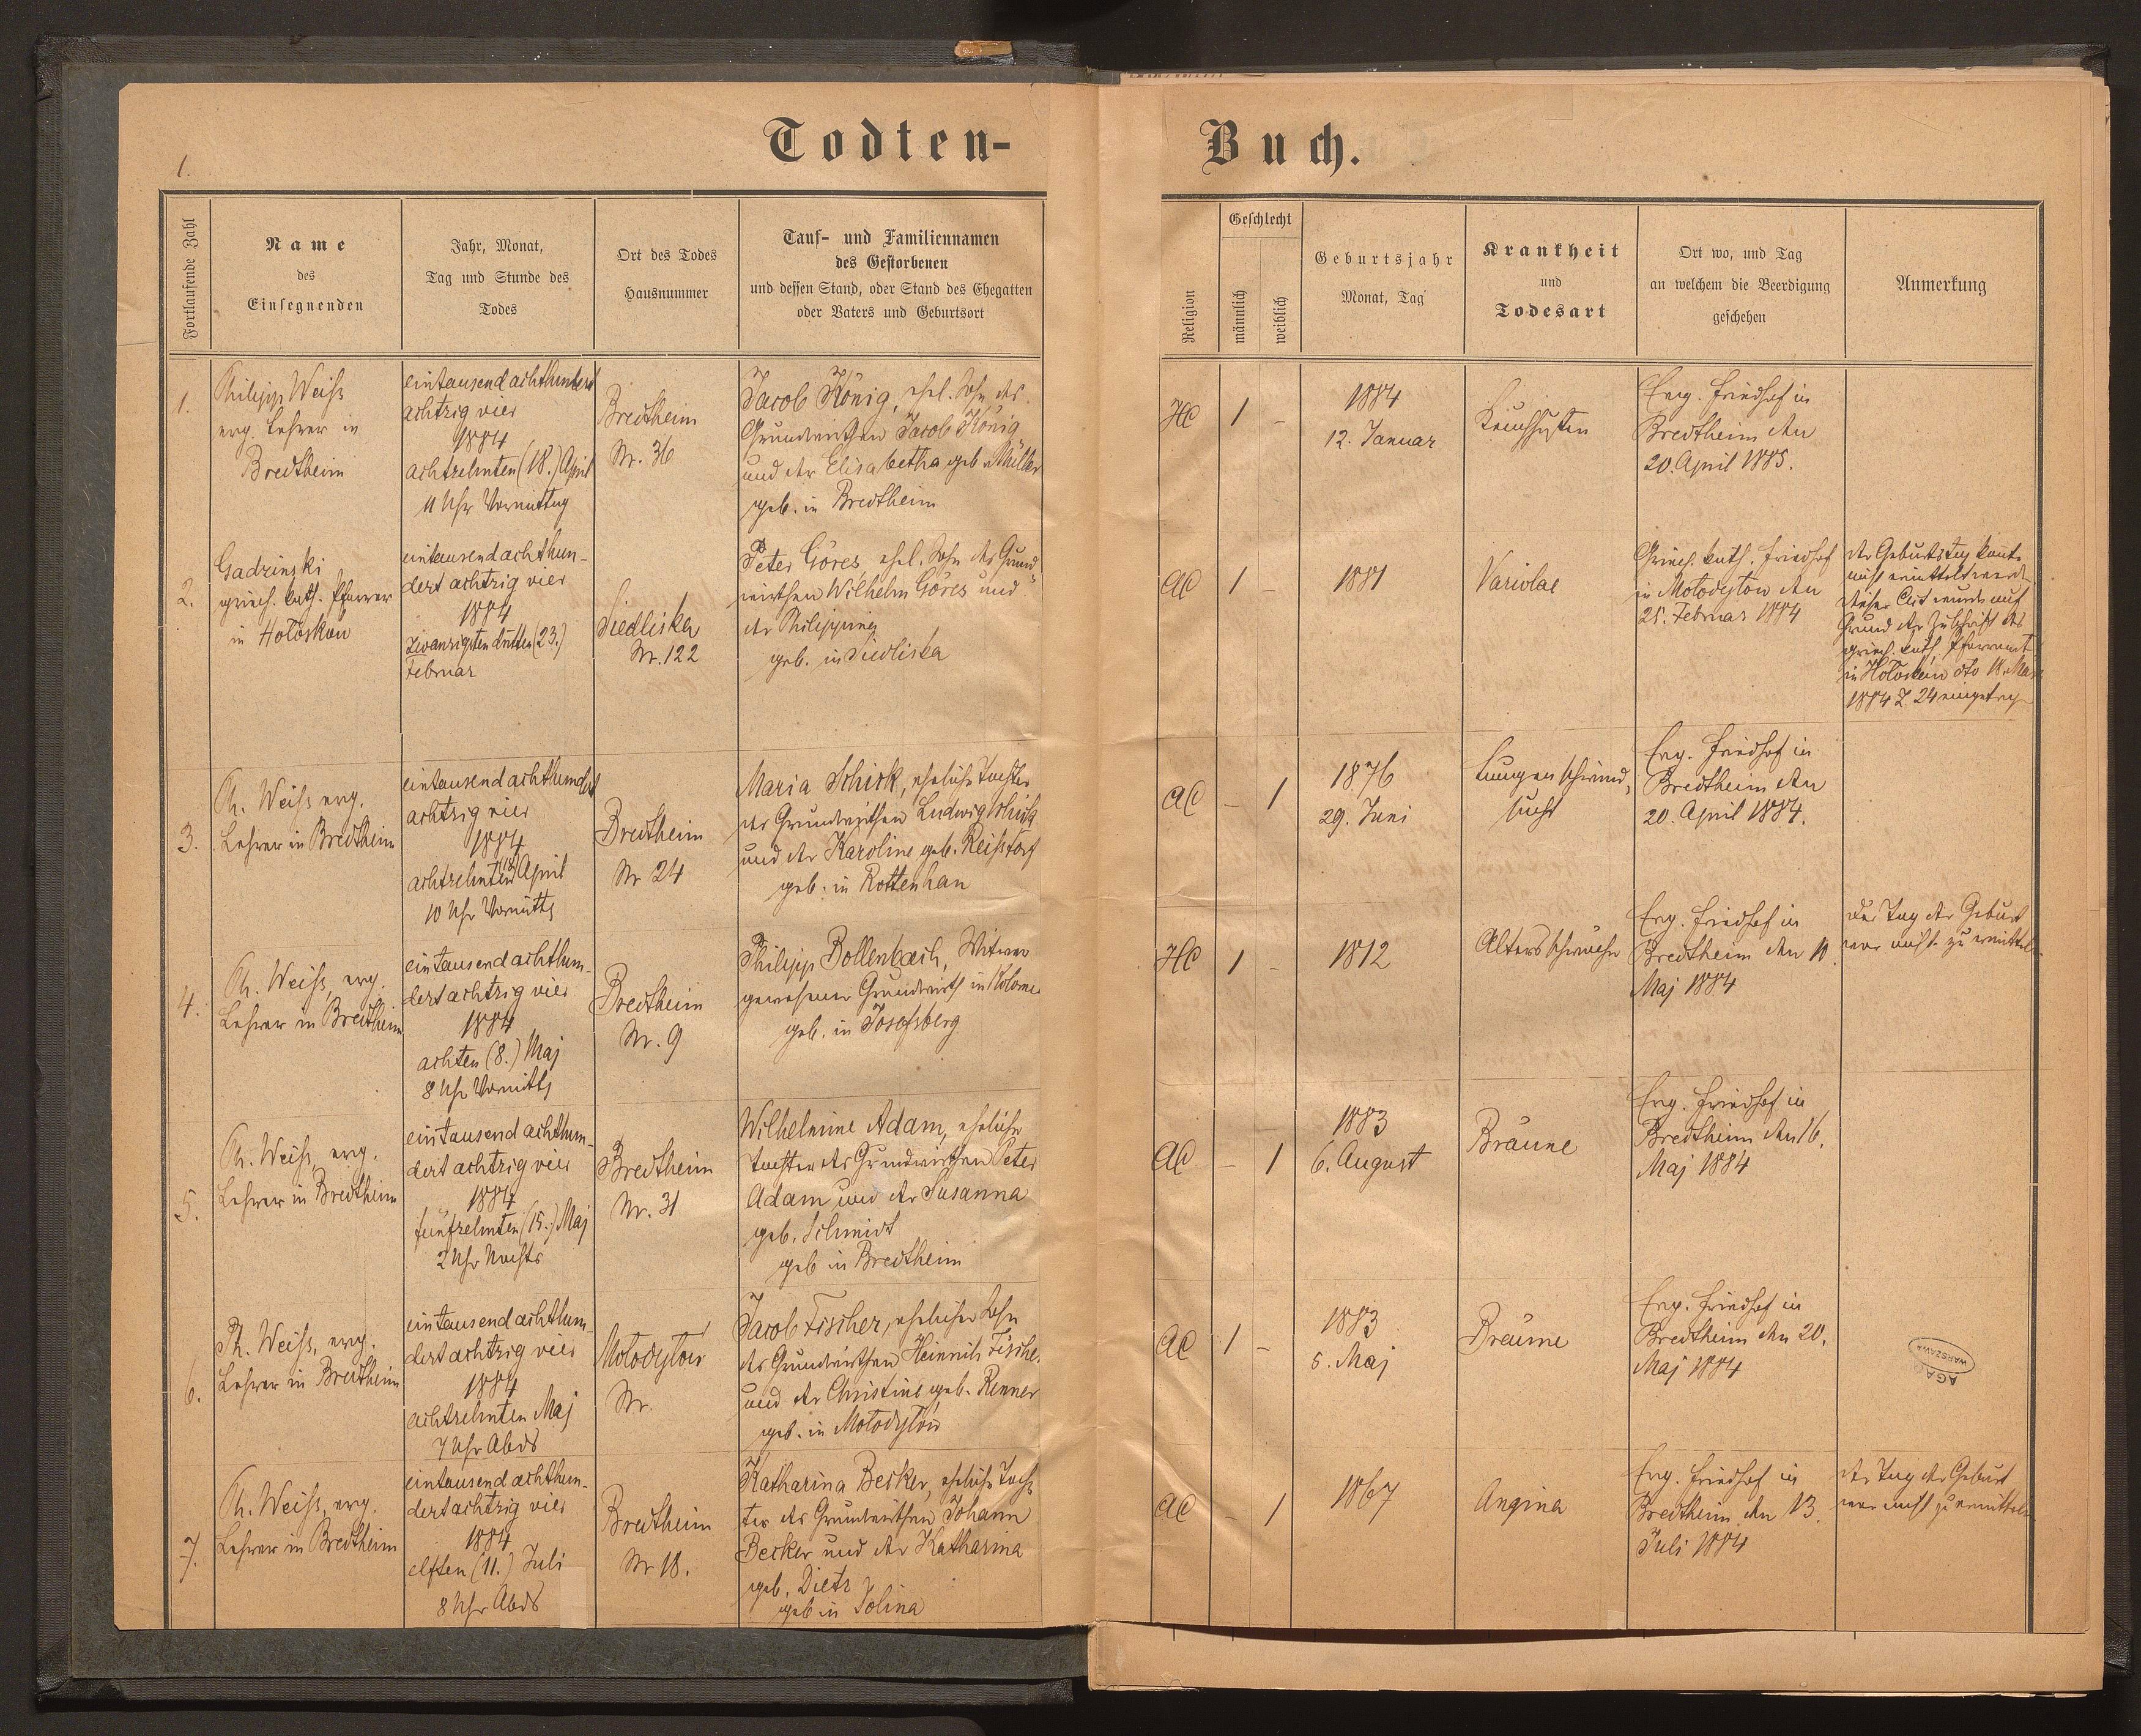 1.
Todten-
Buch.
Fortlaufende Zahl
Name
des
Einsegnenden
Jahr, Monat,
Tag und Stunde des
Todes
Ort des Todes
Hausnummer
Tauf- und Familiennamen
des Gestorbenen
und dessen Stand, oder Stand des Ehegatten
oder Vaters und Geburtsort
Religion
Geschlecht
männlich
weiblich
Geburtsjahr
Monat, Tag
Krankheit
und
Todesart
Ort wo, und Tag
an welchem die Beerdigung
geschehen
Anmerkung
1.
Philipp Weiß
evg. Lehrer in
Bredtheim
eintausend achthundert
achtzig vier
1884
achtzehnten (18.) April
11 Uhr Vormittag
Bredtheim
Nr. 36
Jacob König, ehel. Sohn des
Grundwirthen Jacob König
und der Elisabetha geb. Müller
geb. in Bredtheim
HC
1
-
1884
12. Januar
Keuchhusten
Evg. Friedhof in
Bredtheim den
20. April 1885.
2.
Gadzinski
griech. kath. Pfarrer
in Hołoskow
eintausend achthun-
dert achtzig vier
1884
zwanzigsten dritten (23.)
Februar
Siedliska
Nr. 122
Peter Göres, ehel. Sohn des Grund-
wirthen Wilhelm Göres und
der Philippine
geb. in Siedliska
AC
1
-
1881
Variolae
Griech. kath. Friedhof
in Mołodyłow den
25. Februar 1884
der Geburtstag konnte
nicht ermittelt werden
dieser Act wurde auf
Grund der Zuschrift des
griech. kath. Pfarramt
in Hołoskow dto 18. März
1884 Z. 24 eingetrag
3.
Ph. Weiß evg.
Lehrer in Bredtheim
eintausend achthundert
achtzig vier
1884
achtzehnten (18) April
10 Uhr Vormittg
Bredtheim
Nr 24
Maria Schick, eheliche Tochter
des Grundwirthen Ludwig Schick
und der Karoline geb.
geb. in Rottenhan
AC
-
1
1876
29. Juni
Lungenschwind-
sucht
Evg. Friedhof in
Bredtheim den
20. April 1884.
4.
Ph. Weiß, evg.
Lehrer in Bredtheim
eintausend achthun-
dert achtzig vier
1884
achten (8.) Maj
8 Uhr Vormittg
Bredtheim
Nr. 9
Philipp Bollenbach, Witwer
gewesener Grundwirth in Kolomea
geb. in Josefsberg
HC
1
-
1812
Altersschwäche
Evg. Friedhof in
Bredtheim den 10.
Maj 1884
Der Tag der Geburt
war nicht zu ermitteln
5.
Ph. Weiß, evg.
Lehrer in Bredtheim
eintausend achthun-
dert achtzig vier
1884
fünfzehnten (15.) Maj
2 Uhr Nachts
Bredtheim
Nr. 31
Wilhelmine Adam, eheliche
Tochter des Grundwirthen Peter
Adam und der Susanna
geb. Schmidt
geb in Bredtheim
AC
-
1
1883
6. August
Bräune
Evg. Friedhof in
Bredtheim den 16.
Maj 1884
6.
Ph. Weiß, evg.
Lehrer in Bredtheim
eintausend achthun-
dert achtzig vier
1884
achtzehnten Maj
7 Uhr Abds
Mołodyłow
Nr.
Jacob Fischer, ehelicher Sohn
des Grundwirthen Heinrich Fischer
und der Christine geb. Renner
geb. in Mołodyłow
AC
1
-
1883
5. Maj
Bräune
Evg. Friedhof in
Bredtheim den 20.
Maj 1884
AGAD
WARSZAWA
7.
Ph. Weiß, evg.
Lehrer in Bredtheim
eintausend achthun-
dert achtzig vier
1884
elften (11.) Juli
8 Uhr Abds
Bredtheim
Nr 18.
Katharina Becker, eheliche Toch-
ter des Grundwirthen Johann
Becker und der Katharina
geb. Dietz
geb in
AC
-
1
1867
Angina
Evg. Friedhof in
Bredtheim den 13.
Juli 1884
der Tag der Geburt
war nicht zu ermitteln